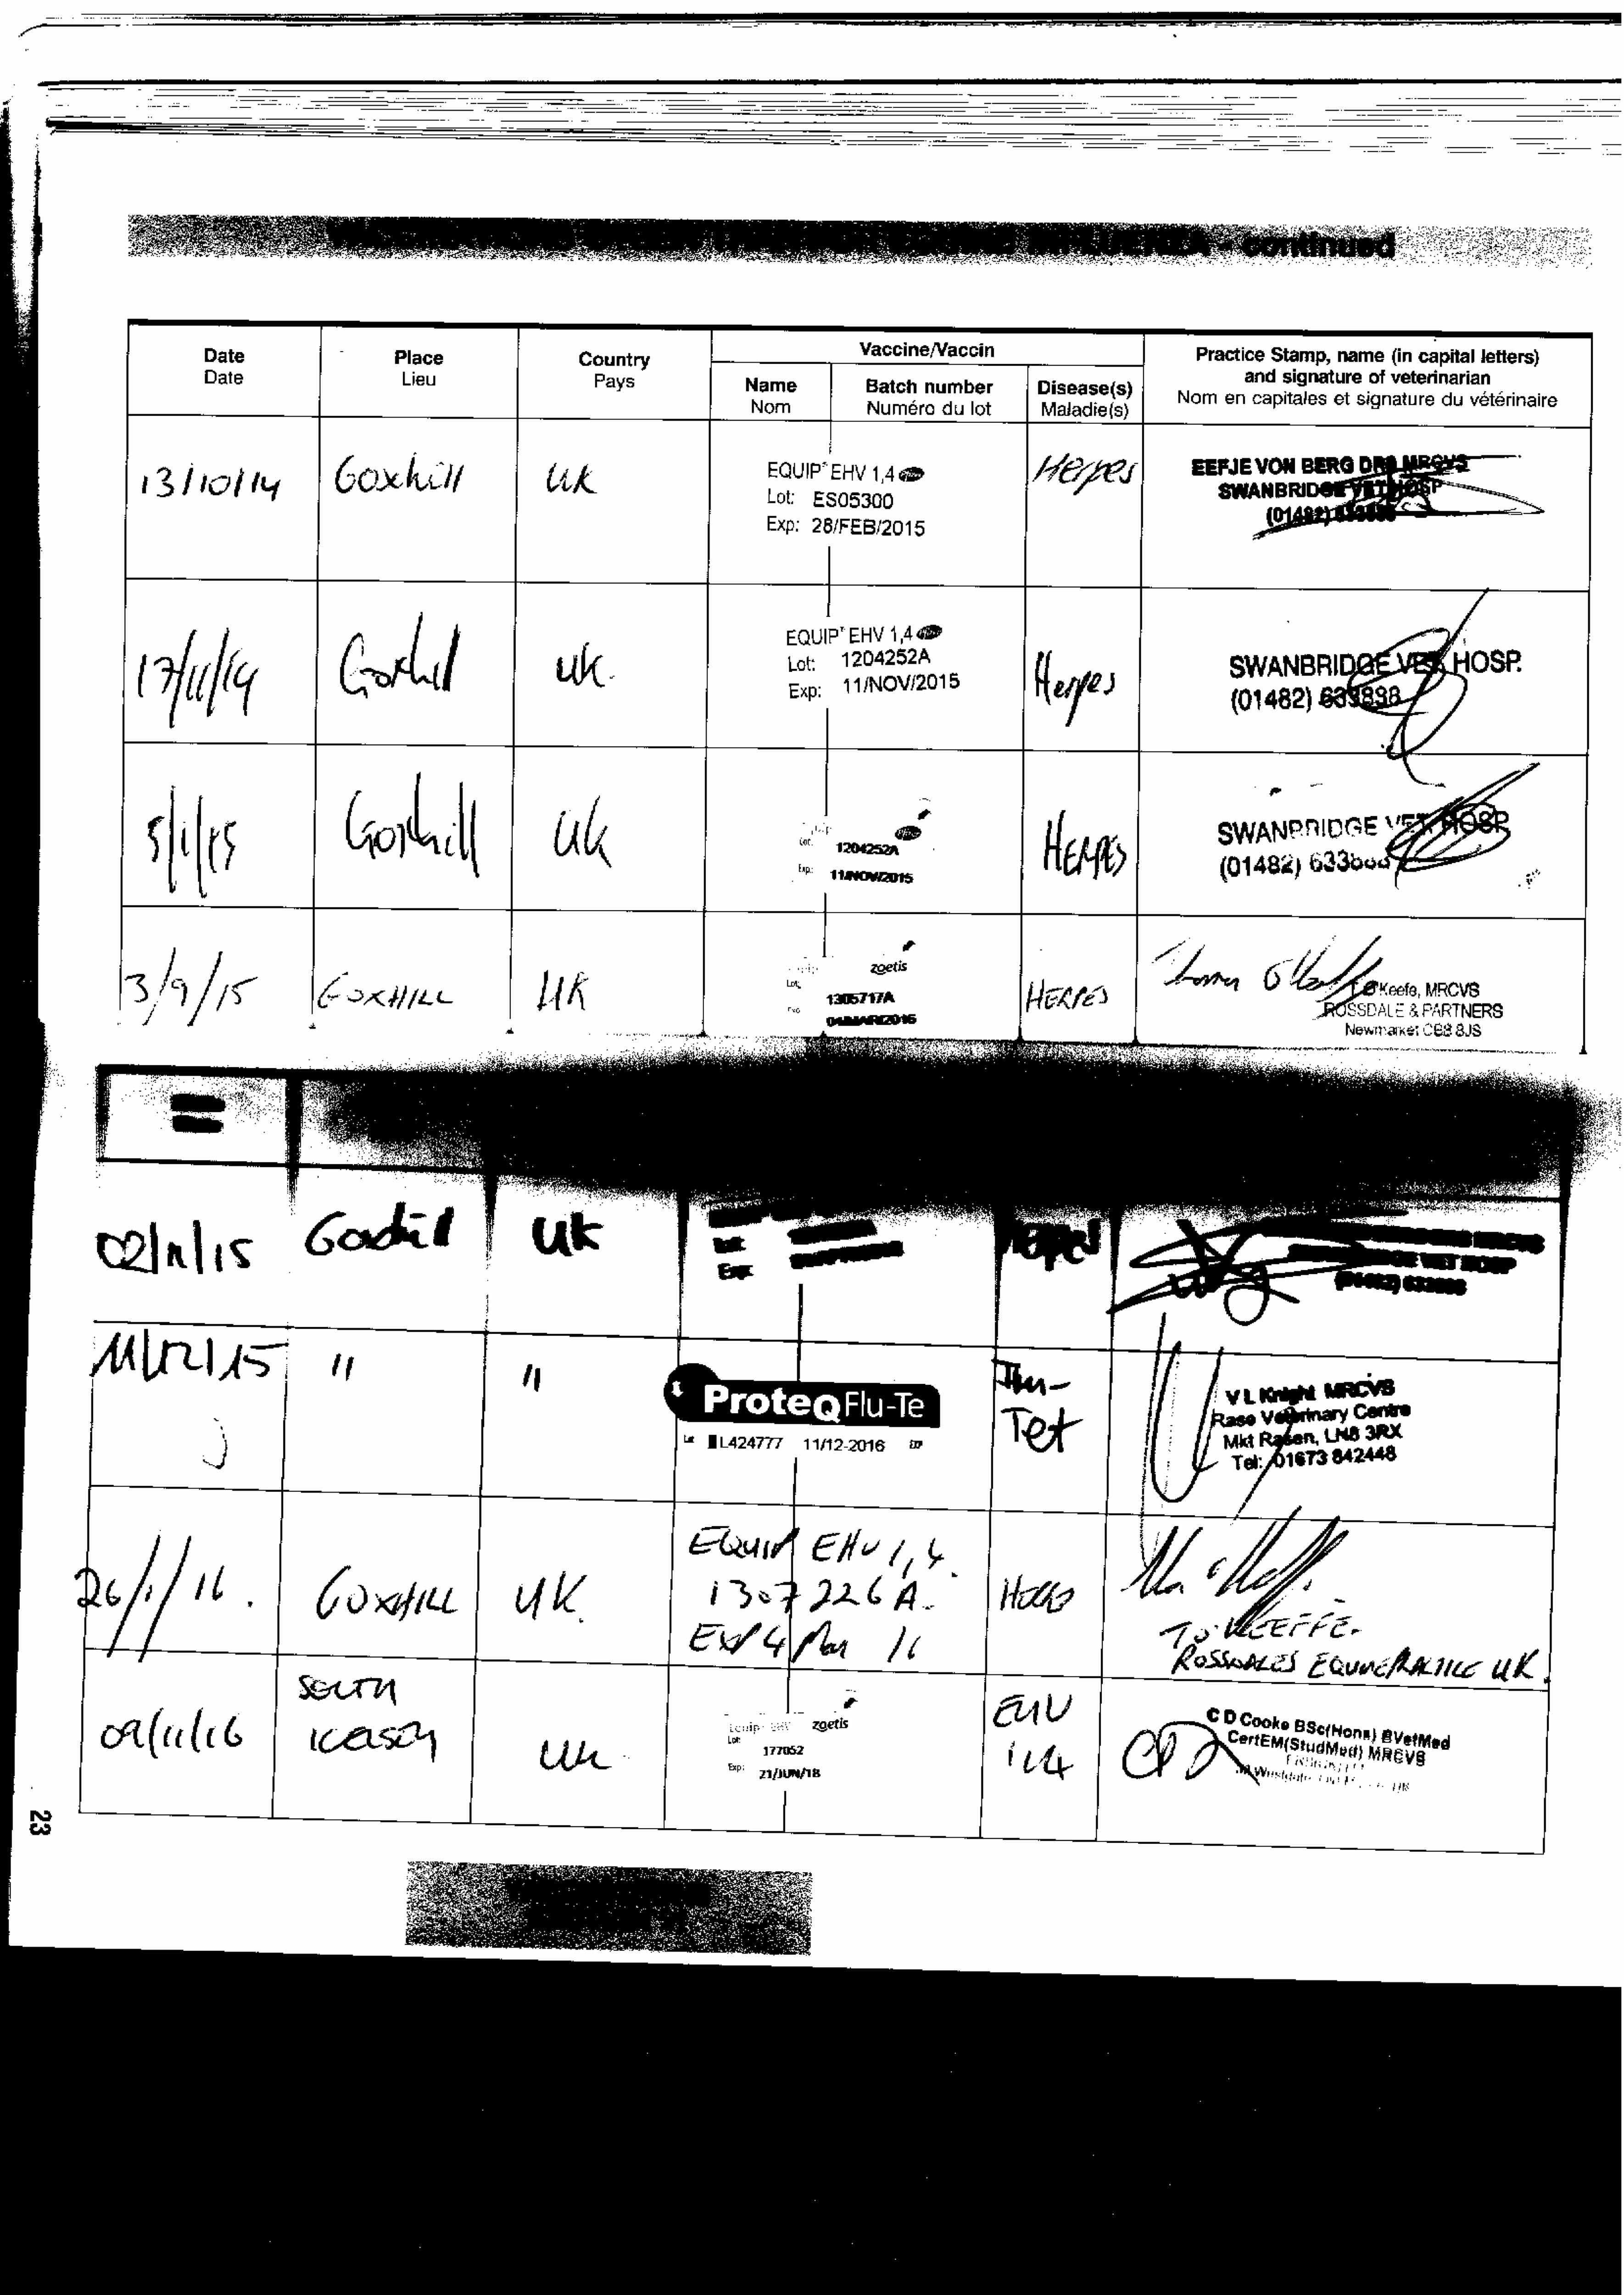 INFLUENZA - continued
Date Place Country Vaccine/Vaccin Practice Stamp, name (in capital letters)
Date Lieu Pays Name Batch number Disease(s) and signature of veterinarian
Nom Numéro du lot Maladie(s) Nom en capitales et signature du vétérinaire
13/10/14 Goxhill UK EQUIP EHV 1,4 Herpes EEFJE VON BERG DRS MRCVS
Lot: ES05300 SWANBRIDGE VET HOSP
Exp: 28/FEB/2015 (01482)
17/11/14 Goxhill UK EQUIP EHV 1,4 Herpes SWANBRIDGE VET HOSP.
Lot: 1204252A (01482) 633898
Exp: 11/NOV/2015
5/1/15 Goxhill UK HERPES SWANBRIDGE VET HOSP
Lot: 1204252A (01482)
Exp: 11/NOV/2015
3/9/15 GOXHILL UK zoetis HERPES O'Keefe, MRCVS
Lot: 1305717A ROSSDALE & PARTNERS
04/MAR/2016 Newmarket CB8 8JS
02/11/15 Goxhill UK Herpes
Lot: VET HOSP
Exp:
11/12/15 " " ProteqFlu-Te Flu-Tet V L Knight MRCVS
L424777 11/12-2016 EXP Rase Veterinary Centre
Mkt Rasen, LN8 3RX
Tel: 01673 842448
26/1/16. GOXHILL UK. EQUIP EHV 1,4. Herpes
1307226A. T O'KEEFFE.
EXP 4 Mar 16 ROSSDALES EQUINE PRACTICE UK.
09/11/16 SOUTH UK Equip EHV zoetis EHV C D Cooke BSc(Hons) BVetMed
Lot: 177052 1,4 CertEM(StudMed) MRCVS
Exp: 21/JUN/18
23